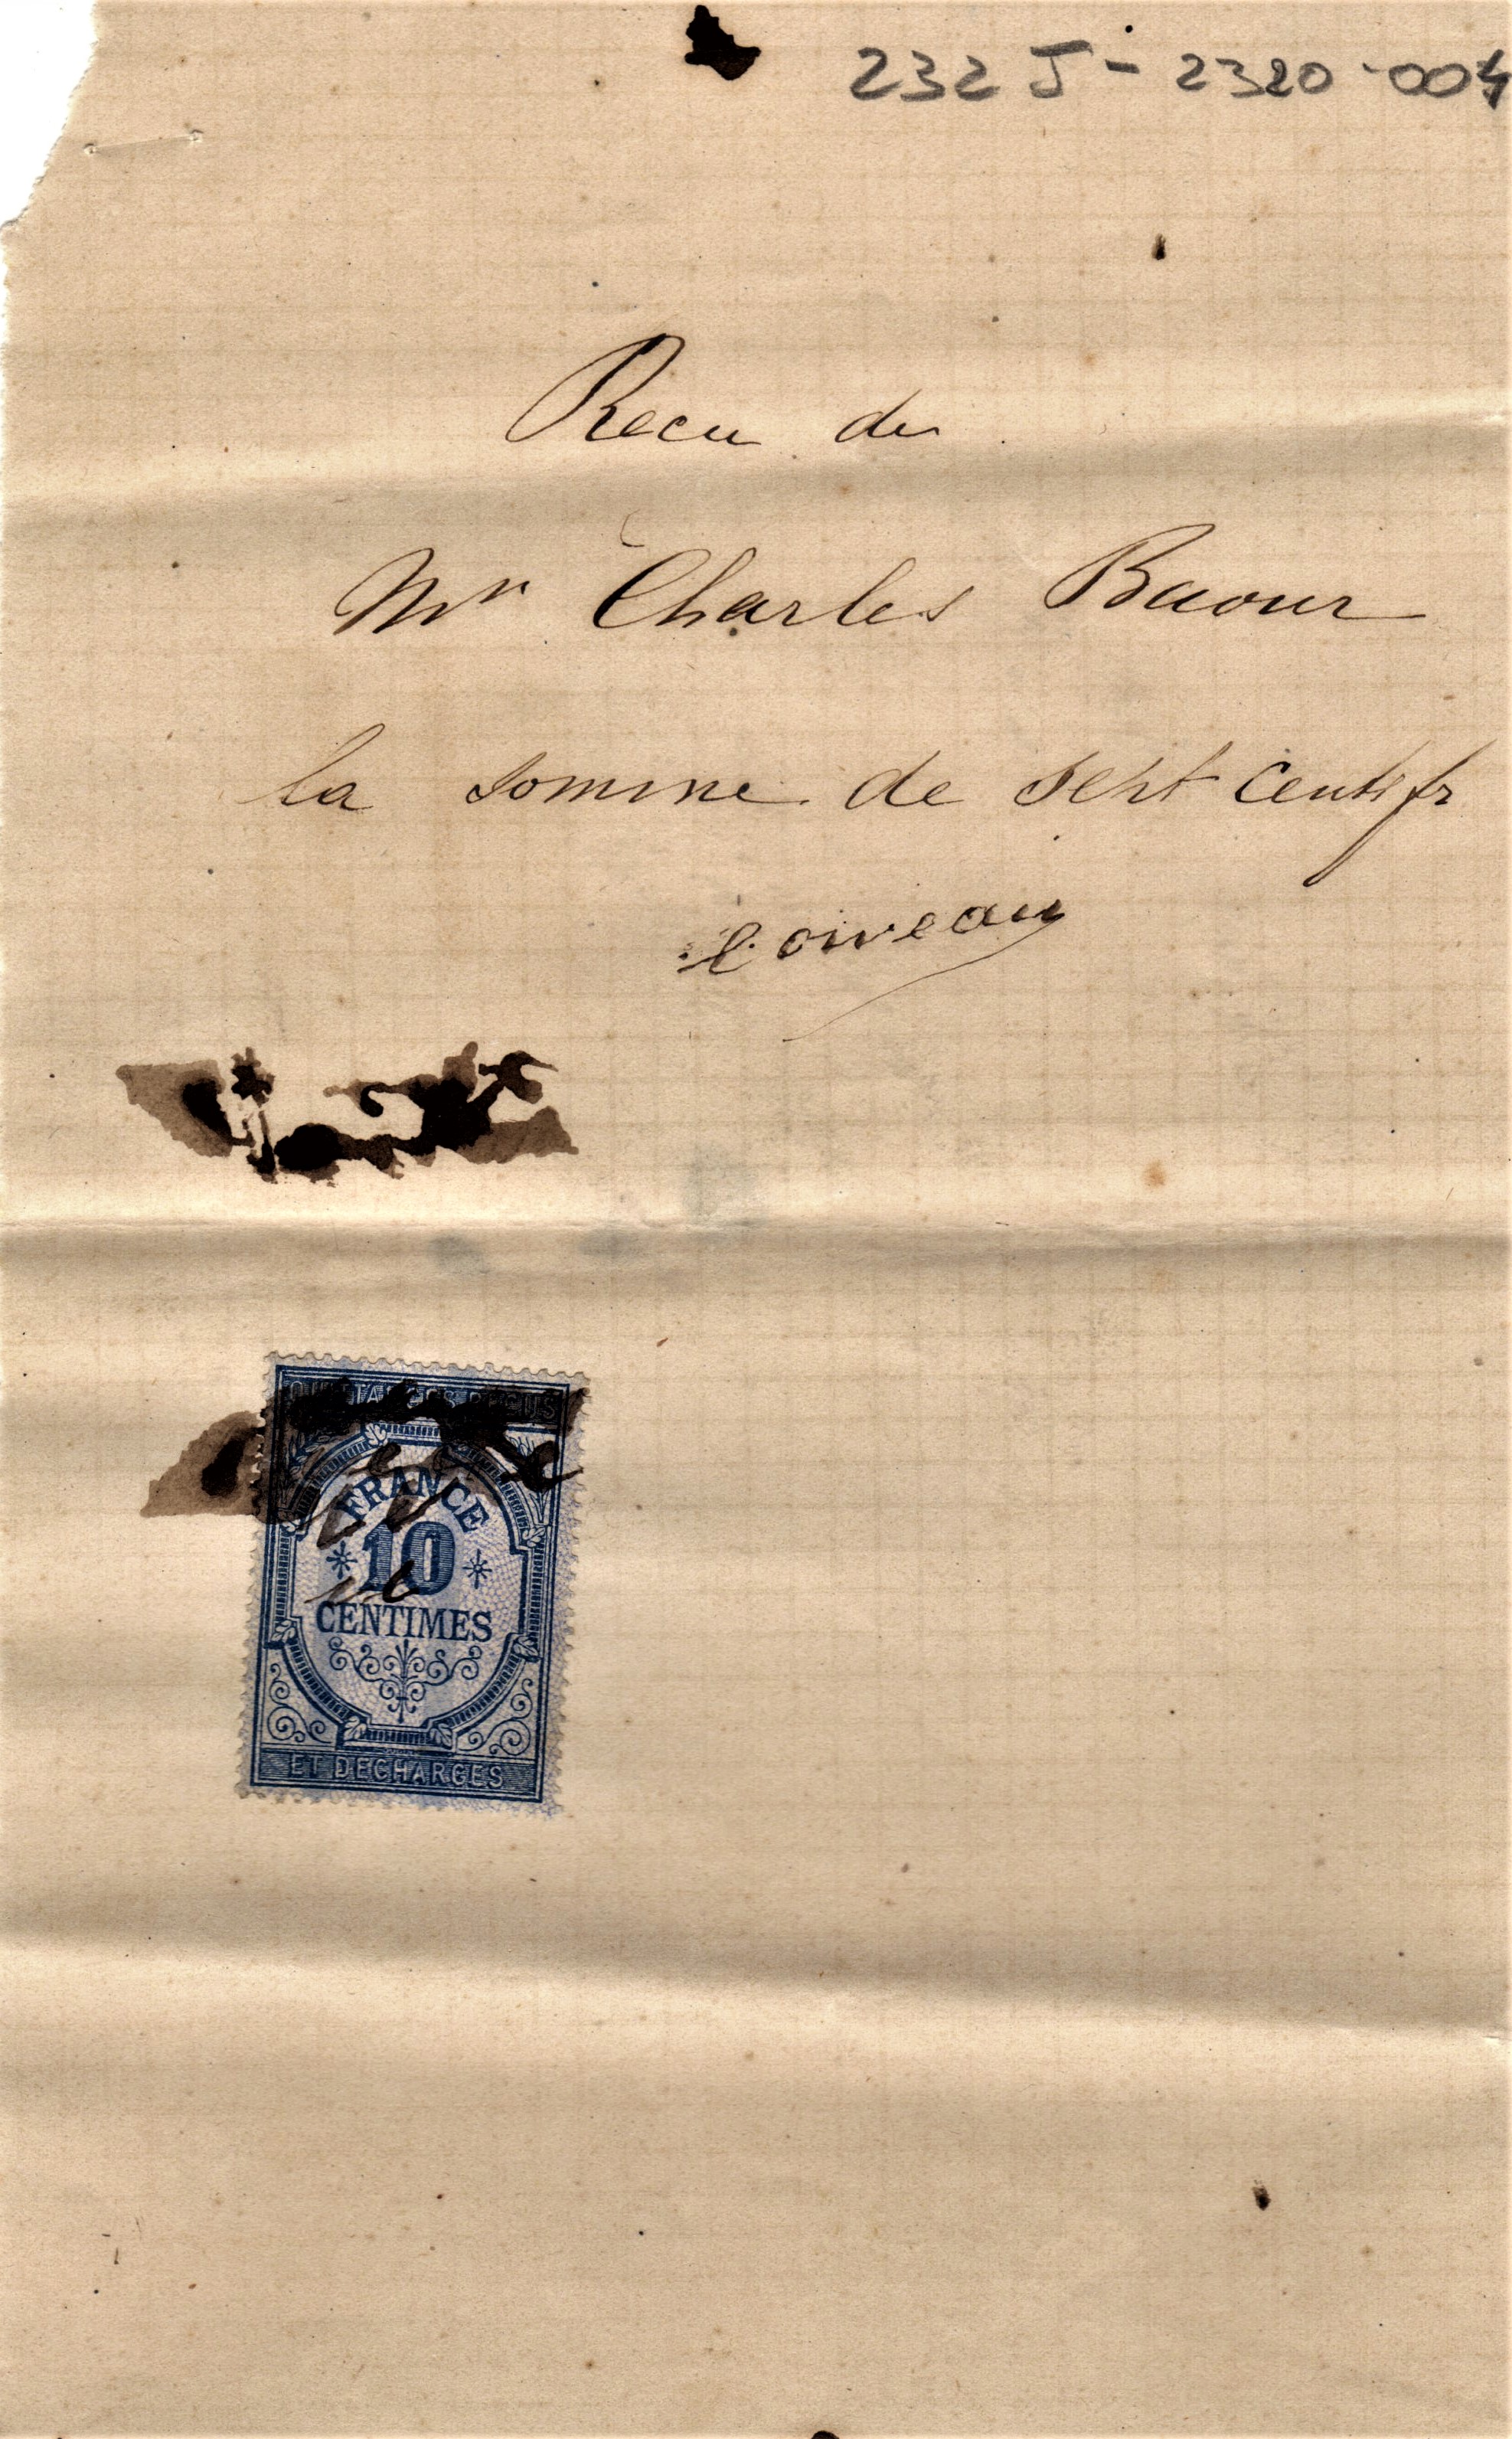 232 J - 2320-004
Recu de
Mr Charles Baour
la somme de sept cents fr
Loiveau
QUITTANCES REÇUS
FRANCE
10
CENTIMES
ET DECHARGES